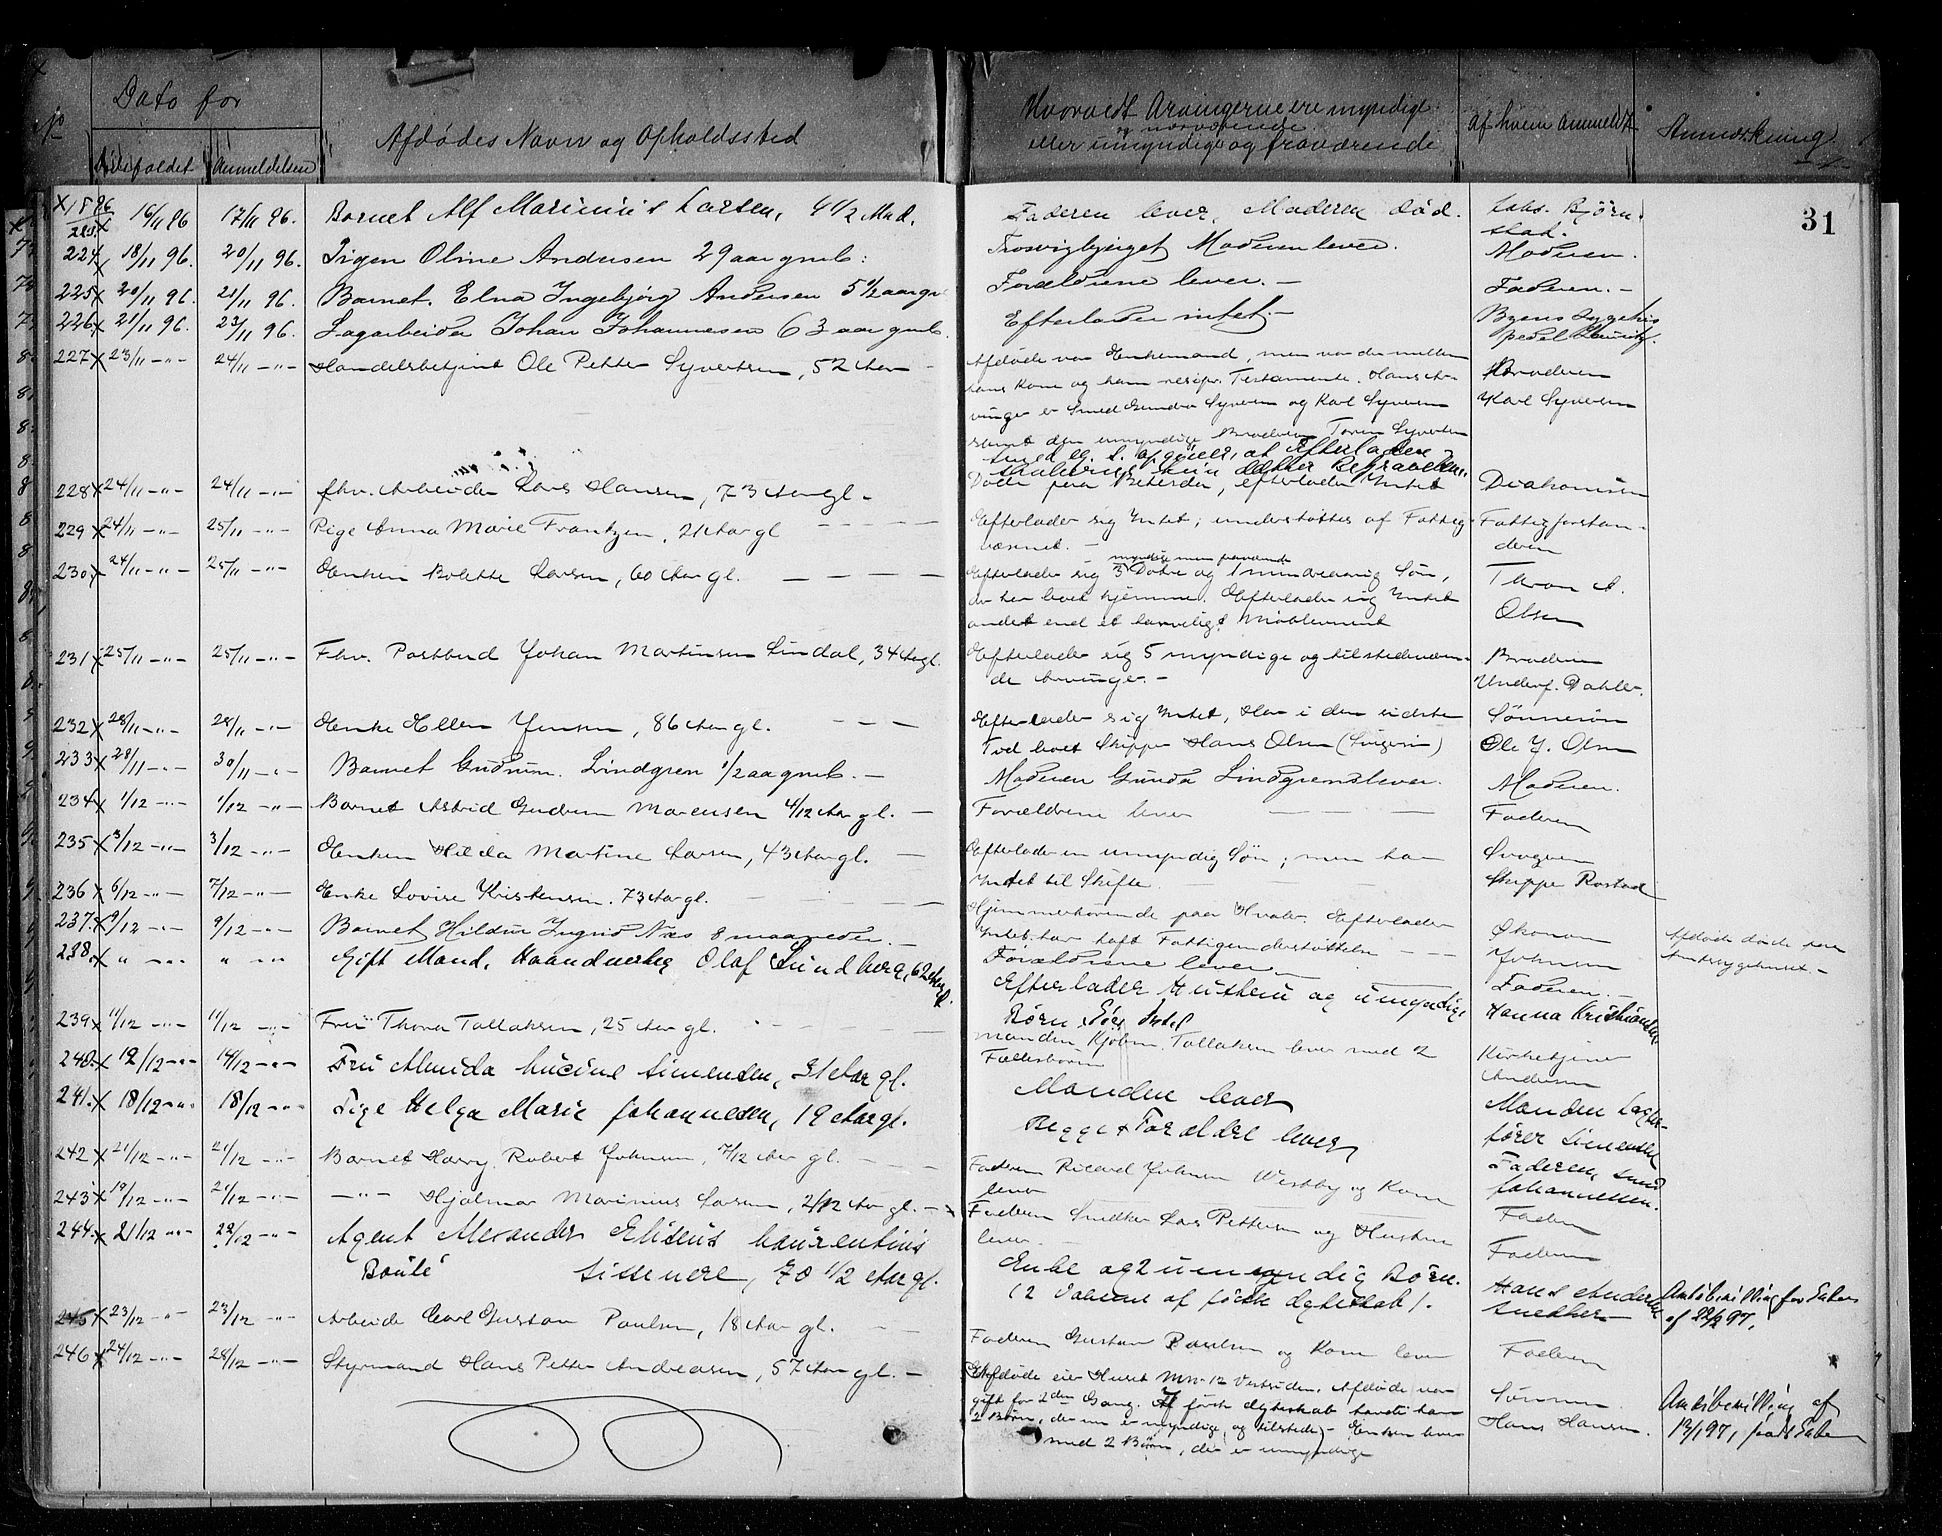 Dato for
Afdødes Navn og Opholdssted
Hvorvidt Arvingerne ere myndige
og nærværende
eller umyndige og fraværende
Af hvem anmeldt
Anmærkning
Dødsfaldet Anmeldelsen
31
16/11 96 17/11 96. Barnet Alf Marinius Larsen, 4 1/2 Mnd. Faderen lever, Moderen død.
224 18/11 96. 20/11 96. Pigen Oline Andersen 29 aar gml: Moderen lever. Moderen.
225 20/11 96. 21/11 96. Barnet. Elna Ingebjørg Andersen 5 1/2 aar Forældrene lever. — Faderen. —
226 21/11 96. 23/11 96. Sagarbeider Johan Johannesen 63 aar gml. Efterlader intet. — Byens Sygehus
227 23/11 -"- 24/11 -"- Handelsbetjent Ole Petter Syvertsen, 52 Aar
Afdøde var Enkemand, men var der mellem
hans Kone og ham resipr. Testamente. Hans Ar- Broderen
vinger er Smed Gunder Syversen og Karl Syversen Karl Syversen
samt den umyndige Broderen Syvertsen
228 24/11 -"- 24/11 -"- fhv. Arbeider Lars Hansen, 73 Aar gl. — efterlader Intet Diakonissen
229 24/11 -"- 25/11 -"- Pige Anna Marie Frantzen, 21 Aar gl Efterlader sig Intet; understøttes af Fattig- Fattigforstan-
væsenet. — deren
230 24/11 -"- 25/11 -"- Enken Bolette Larsen, 60 Aar gl. — — — —
myndige men fraværende
Efterlader sig 3 Døtre og 1 mindreaarig Søn,
der har boet hjemme. Efterlader sig Intet
andet end et tarveligt Møblement Olsen
231 25/11 -"- 25/11 -"- Fhv. Postbud Johan Martinsen Lindal, 34 Aar gl. Efterlader sig 5 myndige og tilstedeværen- Broderen
de Arvinger. — Underf. Dahler.
232 28/11 -"- 28/11 -"- Enke Ellen Jensen, 86 Aar gl. — — — Efterlader sig Intet, Har i den sidste Sønnesøn
Tid boet Skipper Hans Olsen (Svigersøn) Ole J. Olsen
233 28/11 -"- 30/11 -"- Barnet Gudrun. Lindgren 1/2 aar gml. — Moderen Gunda Lindgrens lever. Moderen.
234 1/12 -"- 1/12 -"- Barnet Astrid Gudrun Marensen 4/12 Aar gl. — Forældrene lever — — — Faderen
235 3/12 -"- 3/12 -"- Enken Hilda Martine Larsen, 43 Aar gl. — Efterlader en umyndig Søn; men har Svogeren
Intet til Skifte. Skipper Rostad
236 6/12 -"- 7/12 -"- Enke Lovise Kristensen. 73 Aar gl. Hjemmehørende paa Hvaler. Efterlader
Intet. har haft Fattigunderstøttelse Økonom
Johnsen
Afdøde døde paa
Amtssygehuset. —
237. 9/12 -"- 9/12 -"- Barnet Hildur Ingrid Næs 8 maaneder. — Forældrene lever — Faderen.
238. " -"- " -"- Gift Mand, Haandverker Olaf Lundberg, 62 Aar gl. Efterlader Hustru og umyndige
Børn. Hanna Kristiansen
239 11/12 -"- 11/12 -"- Fru Thora Tollaksen, 25 Aar gl. Manden Tollaksen lever med 2
Fællesbørn Kirketjener
Andersen
240. 12/12 -"- 14/12 -"- Fru Almida Lucine Simensen, 31 Aar gl. Manden lever Manden
fører Simensen
241. 18/12 -"- 18/12 -"- Pige Helga Marie Johannesen, 19 Aar gl. Begge Forældre lever Faderen,
Johannessen.
242 21/12 -"- 21/12 -"- Barnet Harry Robert Johnsen, 7/12 Aar gl. Faderen Ricard Johnsen Westby og Kone
lever Faderen
243 19/12 -"- 21/12 -"- —"— Hjalmar Marinius Larsen, 2/12 Aar gl. — Faderen Snedker Lars Pettersen og Hustru
lever. Faderen
244. 21/12 -"- 22/12 -"- Agent Alexander Eliseus Laurentius
Sissenere, 70 1/2 Aar gl.
Enke og 2 umyndig Børn.
(2 Voksne af første Egteskab). Hans Andersen
Snedker
Amtsbevilling for Enken
af 22/2 97.
245 23/12 -"- 23/12 -"- Arbeider Carl Gustav Paulsen, 18 Aar gl. Faderen Gustav Paulsen og Kone lever Faderen
246 24/12 -"- 28/12 -"- Styrmand Hans Petter Andreasen, 57 Aar gl. —
Afdøde eier Huset No 12 Vestsiden. Afdøde var
gift for 2den Gang. Af første Egteskab havde han
2 Børn, der er myndige, og tilstede — Enken lever
med 2 Børn, der er umyndige
Sønnen
Hans Hansen.
Amtsbevilling af